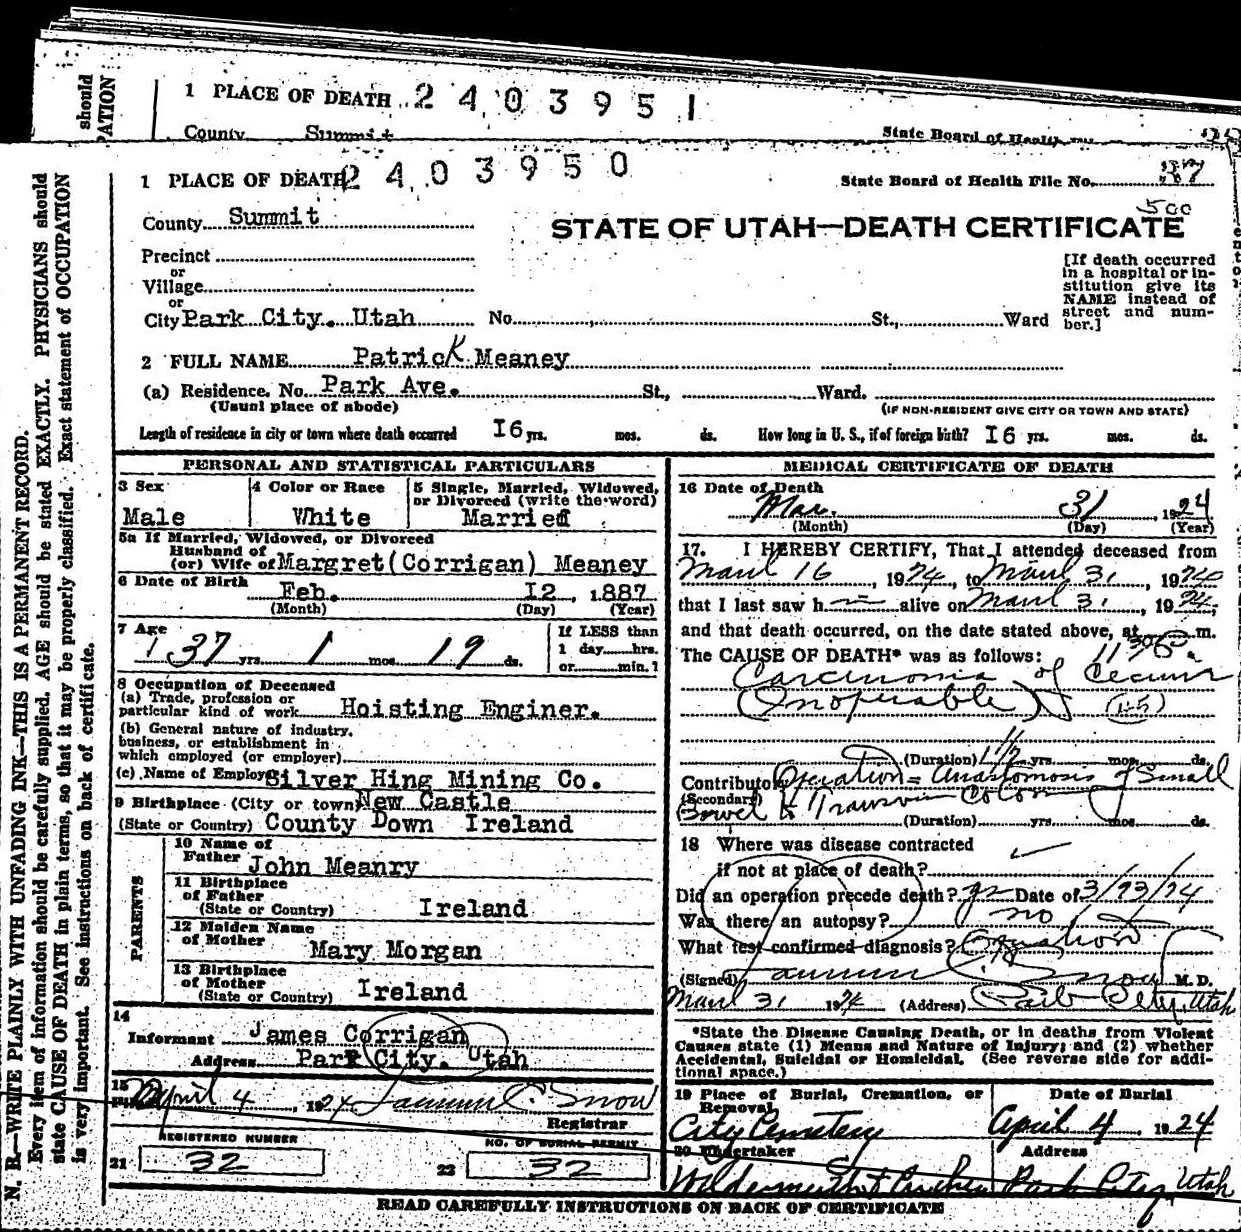 should
PATION
1 PLACE OF DEATH 2403951
County Summit
State Board of Health
N. B.—WRITE PLAINLY WITH UNFADING INK—THIS IS A PERMANENT RECORD.
Every item of information should be carefully supplied. AGE should be stated EXACTLY. PHYSICIANS should
state CAUSE OF DEATH in plain terms, so that it may be properly classified. Exact statement of OCCUPATION
is very important. See instructions on back of certificate.
1 PLACE OF DEATH 2403950
State Board of Health File No. 37
500
County Summit
STATE OF UTAH—DEATH CERTIFICATE
Precinct
or
Village
or
City Park City. Utah No. St., Ward
[If death occurred
in a hospital or in-
stitution give its
NAME instead of
street and num-
ber.]
2 FULL NAME Patrick Meaney
(a) Residence. No. Park Ave. St., Ward.
(Usual place of abode)
(IF NON-RESIDENT GIVE CITY OR TOWN AND STATE)
Length of residence in city or town where death occurred I6 yrs. mos. ds. How long in U. S., if of foreign birth? I6 yrs. mos. ds.
PERSONAL AND STATISTICAL PARTICULARS
3 Sex
Male
4 Color or Race
White
5 Single, Married, Widowed,
or Divorced (write the word)
Married
5a If Married, Widowed, or Divorced
Husband of
(or) Wife of Margret(Corrigan) Meaney
6 Date of Birth
Feb. I2, 1887
(Month) (Day) (Year)
7 Age
37 yrs. 1 mos. 19 ds.
If LESS than
1 day hrs.
or min.?
8 Occupation of Deceased
(a) Trade, profession or
particular kind of work Hoisting Enginer.
(b) General nature of industry,
business, or establishment in
which employed (or employer)
(c) Name of Employer Silver Hing Mining Co.
9 Birthplace (City or town) New Castle
(State or Country) County Down Ireland
PARENTS
10 Name of
Father John Meanry
11 Birthplace
of Father
(State or Country) Ireland
12 Maiden Name
of Mother
Mary Morgan
13 Birthplace
of Mother
(State or Country) Ireland
14
Informant James Corrigan
Address Park City. Utah
15
April 4, 1924
Registrar
REGISTERED NUMBER
21 32
NO. OF BURIAL PERMIT
22 32
MEDICAL CERTIFICATE OF DEATH
16 Date of Death
Mar. 31, 1924
(Month) (Day) (Year)
17. I HEREBY CERTIFY, That I attended deceased from
March 16, 1924, to March 31, 1924
that I last saw h alive on March 31, 1924,
and that death occurred, on the date stated above, at m.
The CAUSE OF DEATH* was as follows:
Carcinoma of Cecum
(Inoperable)
(Duration) 1 1/2 yrs. mos. ds.
Contributory Operation = Anastomosis of Small
(Secondary)
Bowel to Transverse Colon
(Duration) yrs. mos. ds.
18 Where was disease contracted
if not at place of death?
Did an operation precede death? yes Date of 3/23/24
Was there an autopsy? no
What test confirmed diagnosis? Operation
(Signed) Snow M. D.
March 31 1924 (Address) Park City, Utah
*State the Disease Causing Death, or in deaths from Violent
Causes state (1) Means and Nature of Injury; and (2) whether
Accidental, Suicidal or Homicidal. (See reverse side for addi-
tional space.)
19 Place of Burial, Cremation, or
Removal
City Cemetery
Date of Burial
April 4, 1924
20 Undertaker
Address
Park City, Utah
READ CAREFULLY INSTRUCTIONS ON BACK OF CERTIFICATE